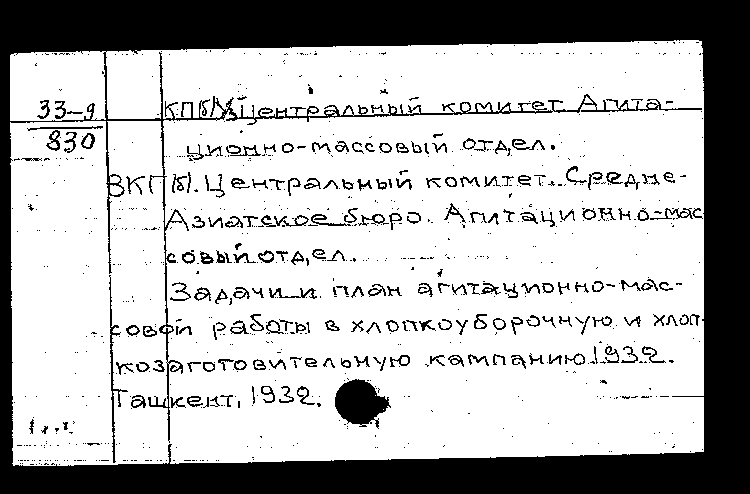 33-9
830
КП(б)У. Центральный комитет Агита-
ционно-массовый отдел.
ВКП(б). Центральный комитет. Средне-
Азиатское бюро. Агитационно-мас
совый отдел.
Задачи и план агитационно-мас-
совой работы в хлопкоуборочную и хлоп-
козаготовительную кампанию 1932.
Ташкент, 1932.